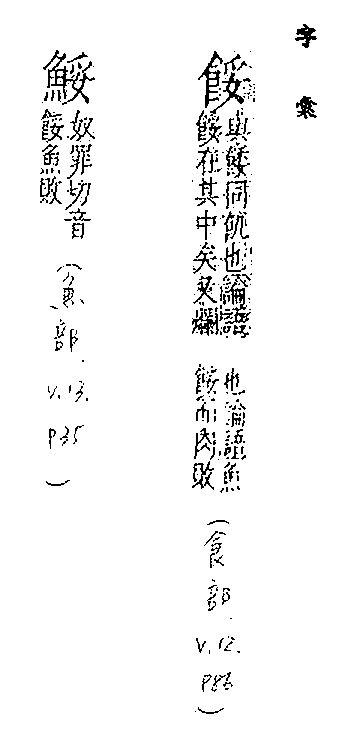 字彙
餒
與餧同飢也論語
餒在其中矣又爛
也論語魚
餒而肉敗
(食部 V.12. P86)
鮾
奴罪切音
餒魚敗
(魚部 V.13. P35)